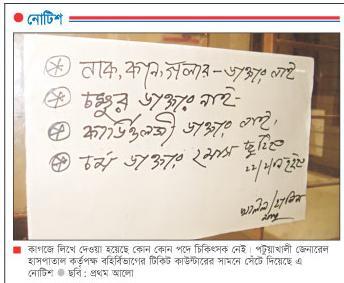 নোটিশ
নাক, কান, গলার - ডাক্তার নাই
চক্ষুর ডাক্তার নাই -
কার্ডিওলজী ডাক্তার নাই,
চর্ম ডাক্তার ২ মাস ছুটিতে
কাগজে লিখে দেওয়া হয়েছে কোন কোন পদে চিকিৎসক নেই। পটুয়াখালী জেনারেল
হাসপাতাল কর্তৃপক্ষ বহির্বিভাগের টিকিট কাউন্টারের সামনে সেঁটে দিয়েছে এ
নোটিশ ● ছবি : প্রথম আলো